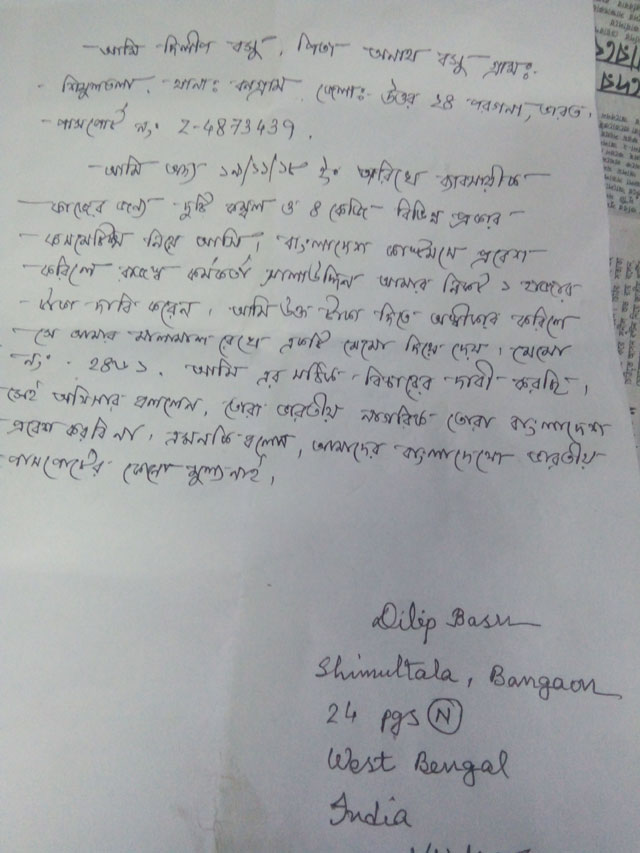 আমি দিলীপ বসু, পিতা অনাথ বসু গ্রামঃ-
শিমুলতলা, থানাঃ বনগ্রাম, জেলাঃ উত্তর 24 পরগনা, ভারত,
পাসপোর্ট নং Z-4873439.
আমি অদ্য ১৯/১১/১৮ ইং তারিখে ব্যবসায়ীক
কাজের জন্যে দুটি কম্বল ও ৪ কেজি বিভিন্ন প্রকার
কসমেটিক্স নিয়ে আসি, বাংলাদেশ কাস্টমসে প্রবেশ
করিলে কর্মকর্তা সালাউদ্দিন আমার নিকট ১ হাজার
টাকা দাবি করেন, আমি উক্ত টাকা দিতে অস্বীকার করিলে
সে আমার মালামাল রেখে একটি মেমো দিয়ে দেয়, মেমো
নং. আমি এর সঠিক বিচারের দাবী করছি,
সেই অফিসার বললেন, তোরা ভারতীয় নাগরিক তোরা বাংলাদেশ
প্রবেশ করবি না, এমনকি বলেন, আমাদের বাংলাদেশে ভারতীয়
পাসপোর্টের কোনো মূল্য নাই,
Dilip Basu
Shimultala, Bangaon
24 pgs (N)
West Bengal
India